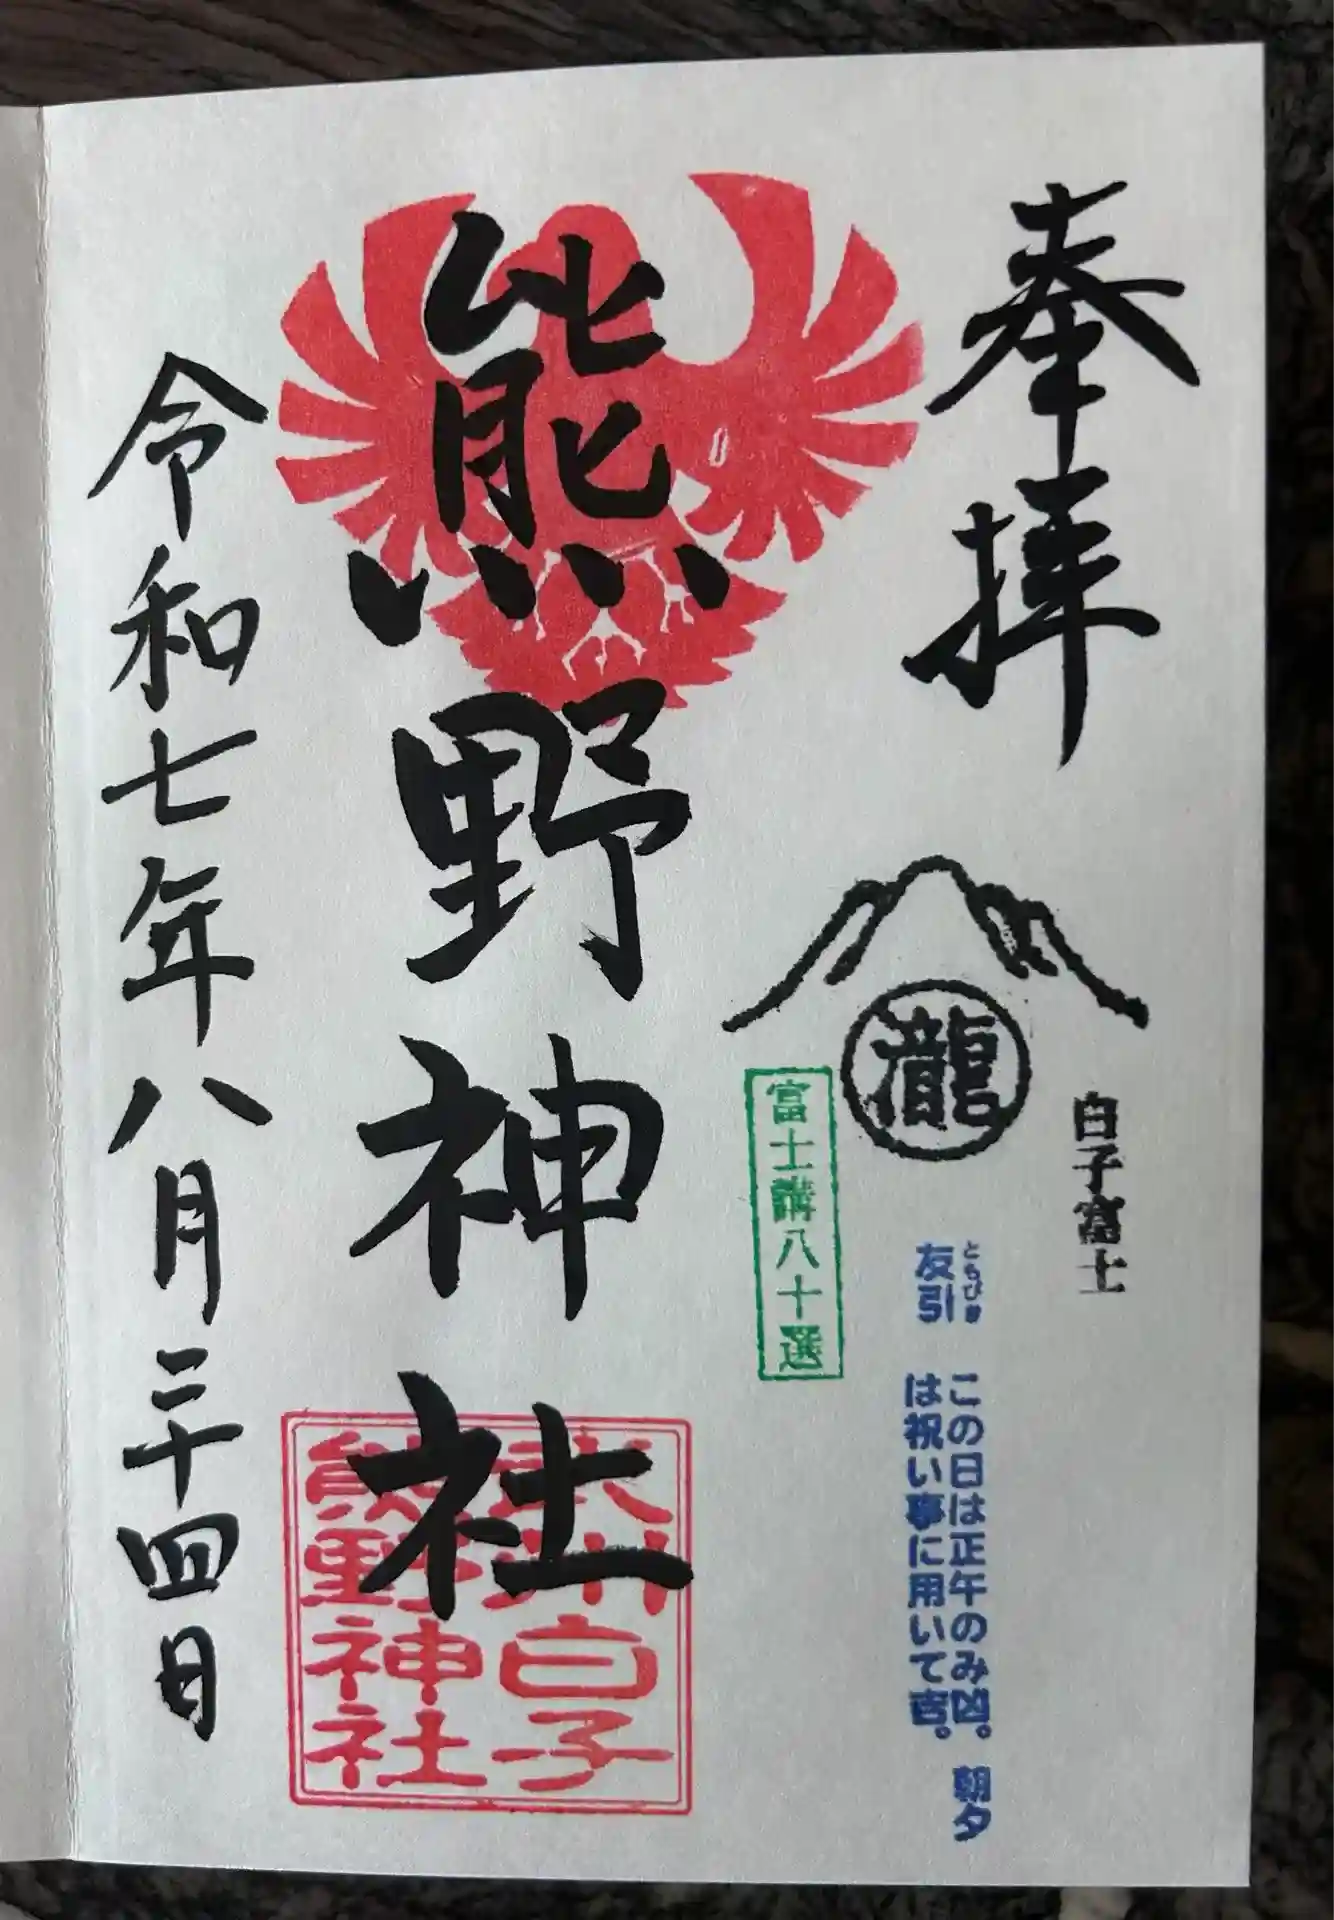 奉拝
瀧
白子富士
富士講八十選
ともびき
友引
この日は正午のみ凶。朝夕
は祝い事に用いて吉。
熊野神社
武州白子
熊野神社
令和七年八月二十四日